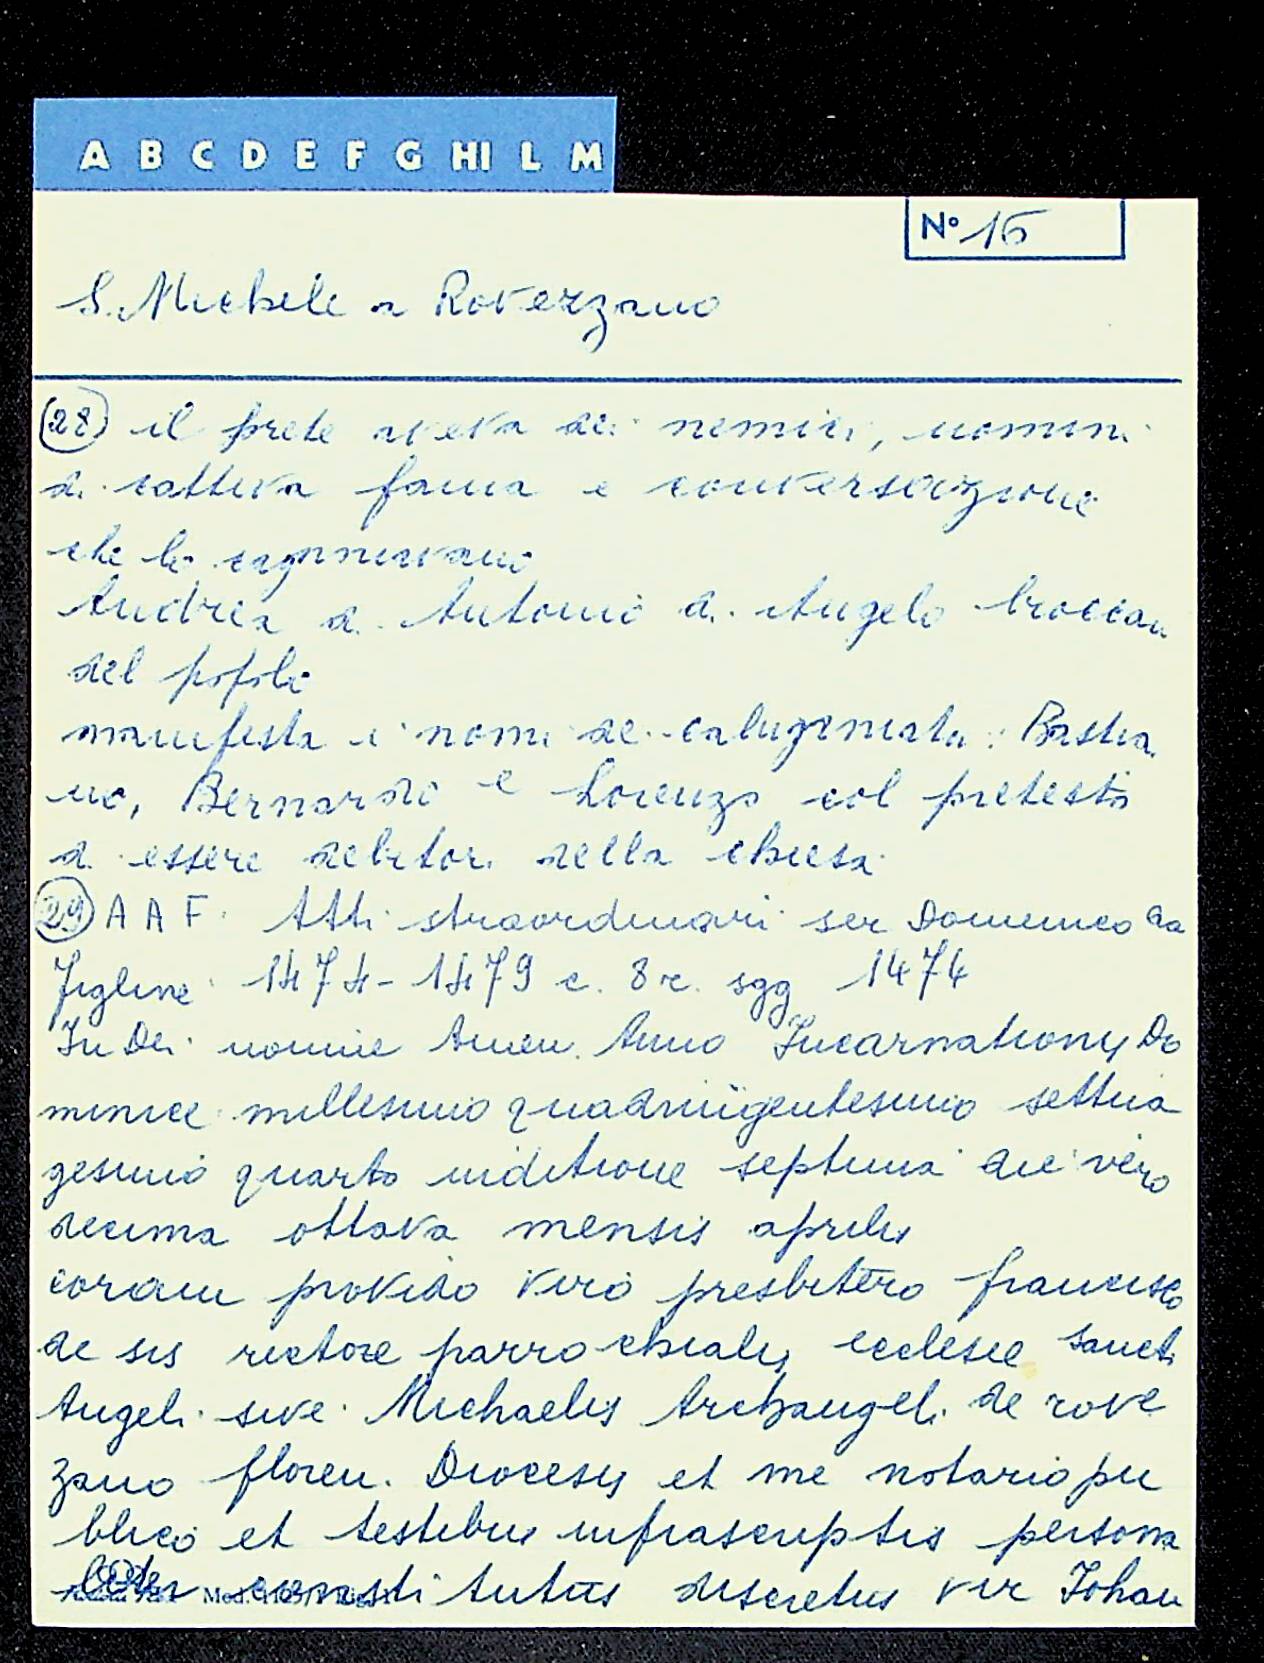 A B C D E F G HI L M
N° 16
S. Michele a Rovezzano
(28) il prete aveva dei nemici, uomini
di cattiva fama e conversazione
che lo
Andrea di Antonio di Angelo
del popolo
manifesta i nomi dei : Bastia
no, Bernardo e Lorenzo col pretesto
di essere debitori della chiesa
(29) A A F. Atti straordinari ser Domenico da
Figline 1474-1479 c. 8r. sgg 1474
In Dei nomine Amen. Anno Incarnationis Do
minice millesimo quadringentesimo settua
gesimo quarto inditione septima die vero
decima ottava mensis aprilis
coram provido viro presbitero francisco
de sis rectore parrochialis ecclesie Sancti
Angeli sive Michaelis Archangeli de rove
zano floren. Diocesis et me notario pu
blico et testibus infrascriptis persona
liter constitutus discretus vir Johan
Mod.